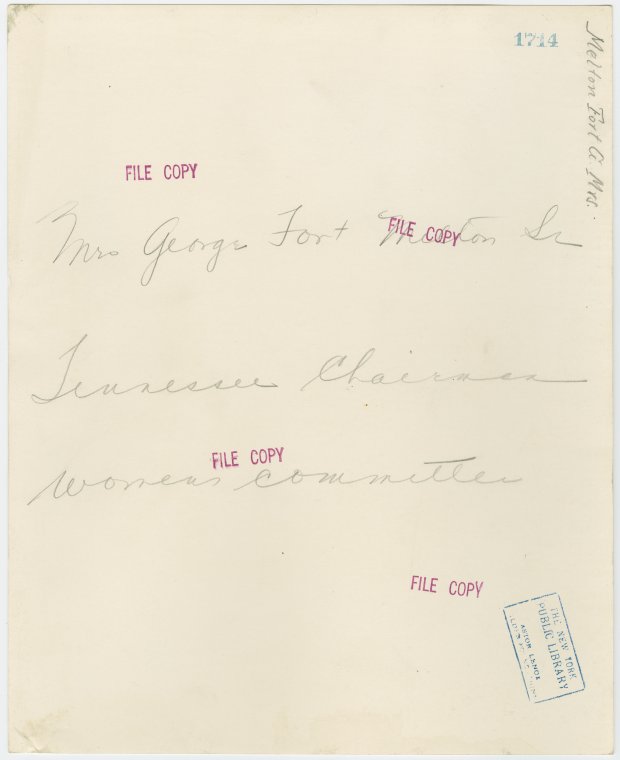 1714
Melton Fort G. Mrs.
FILE COPY
Mrs George Fort Melton Sr
FILE COPY
Tennessee Chairman
FILE COPY
Womens Committee
FILE COPY
THE NEW YORK
PUBLIC LIBRARY
ASTOR, LENOX